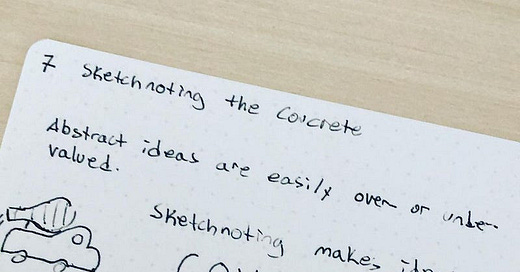 7 Sketchnoting the Concrete
Abstract ideas are easily over or under-
valued.
Sketchnoting makes